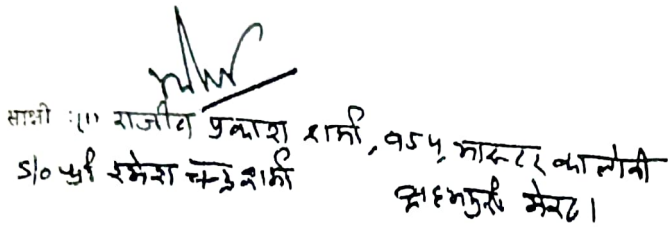 साक्षी :(1) राजीव प्रकाश शर्मा, 154, मास्टर कालोनी
S/o श्री रमेश चन्द्र शर्मा
ब्रह्मपुरी मेरठ।